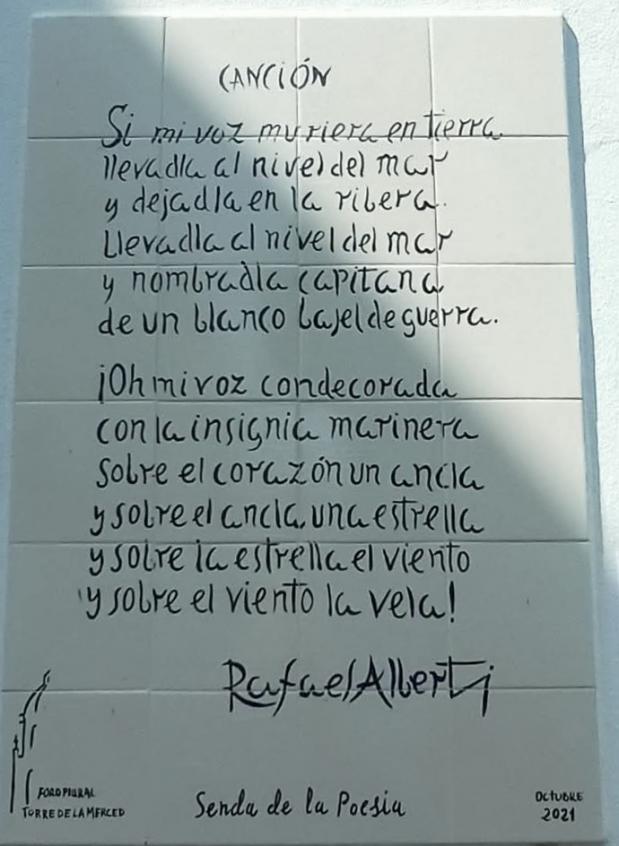 CANCIÓN
Si mi voz muriera en tierra
llevadla al nivel del mar
y dejadla en la ribera.
Llevadla al nivel del mar
y nombradla capitana
de un blanco bajel de guerra.
¡Oh mi voz condecorada
con la insignia marinera
sobre el corazón un ancla
y sobre el ancla una estrella
y sobre la estrella el viento
y sobre el viento la vela!
Rafael Alberti
FORO PLURAL
TORRE DE LA MERCED
Senda de la Poesía
OCTUBRE
2021